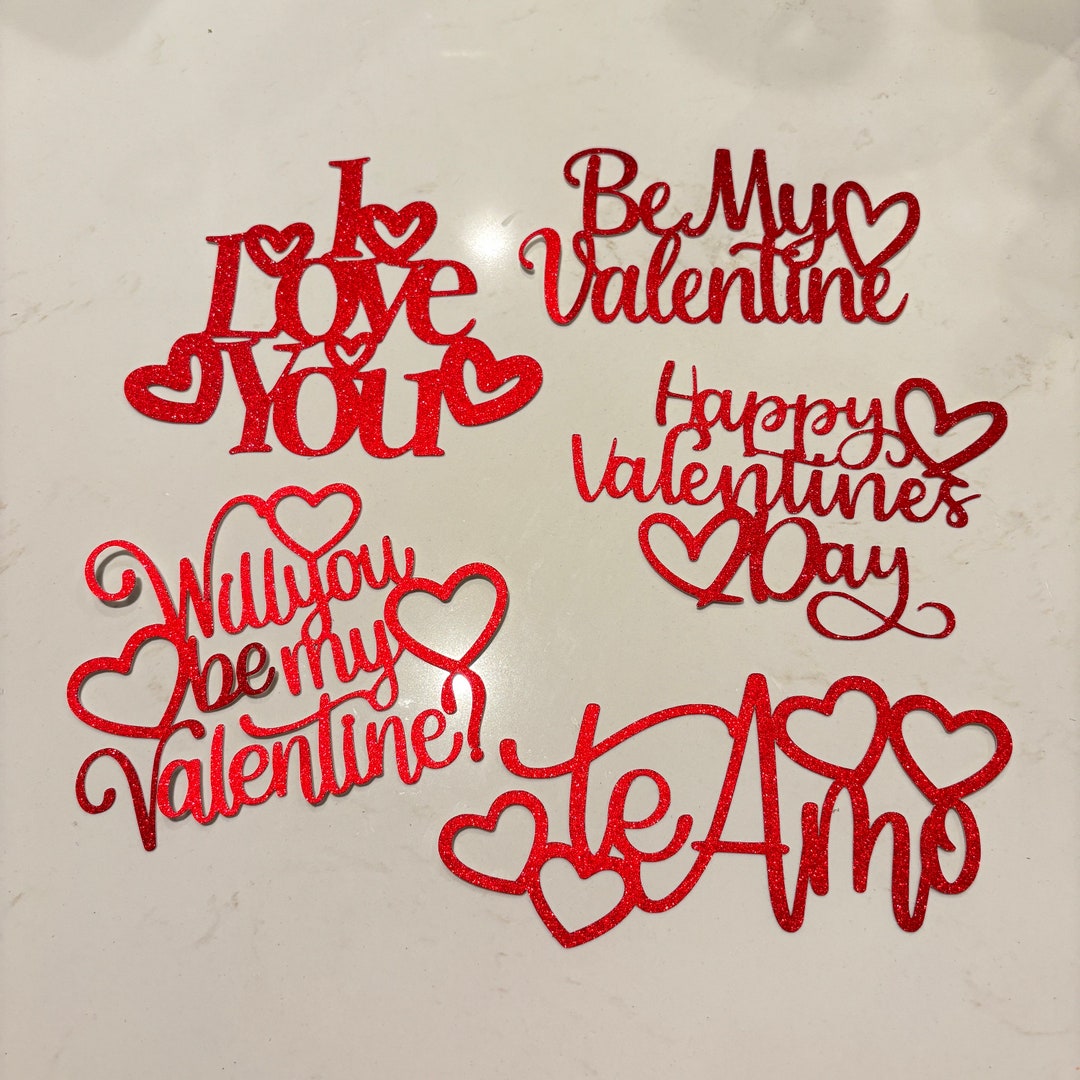 I
Love
You
Be My
Valentine
Happy
Valentines
Day
Will you
be my
Valentine?
te Amo